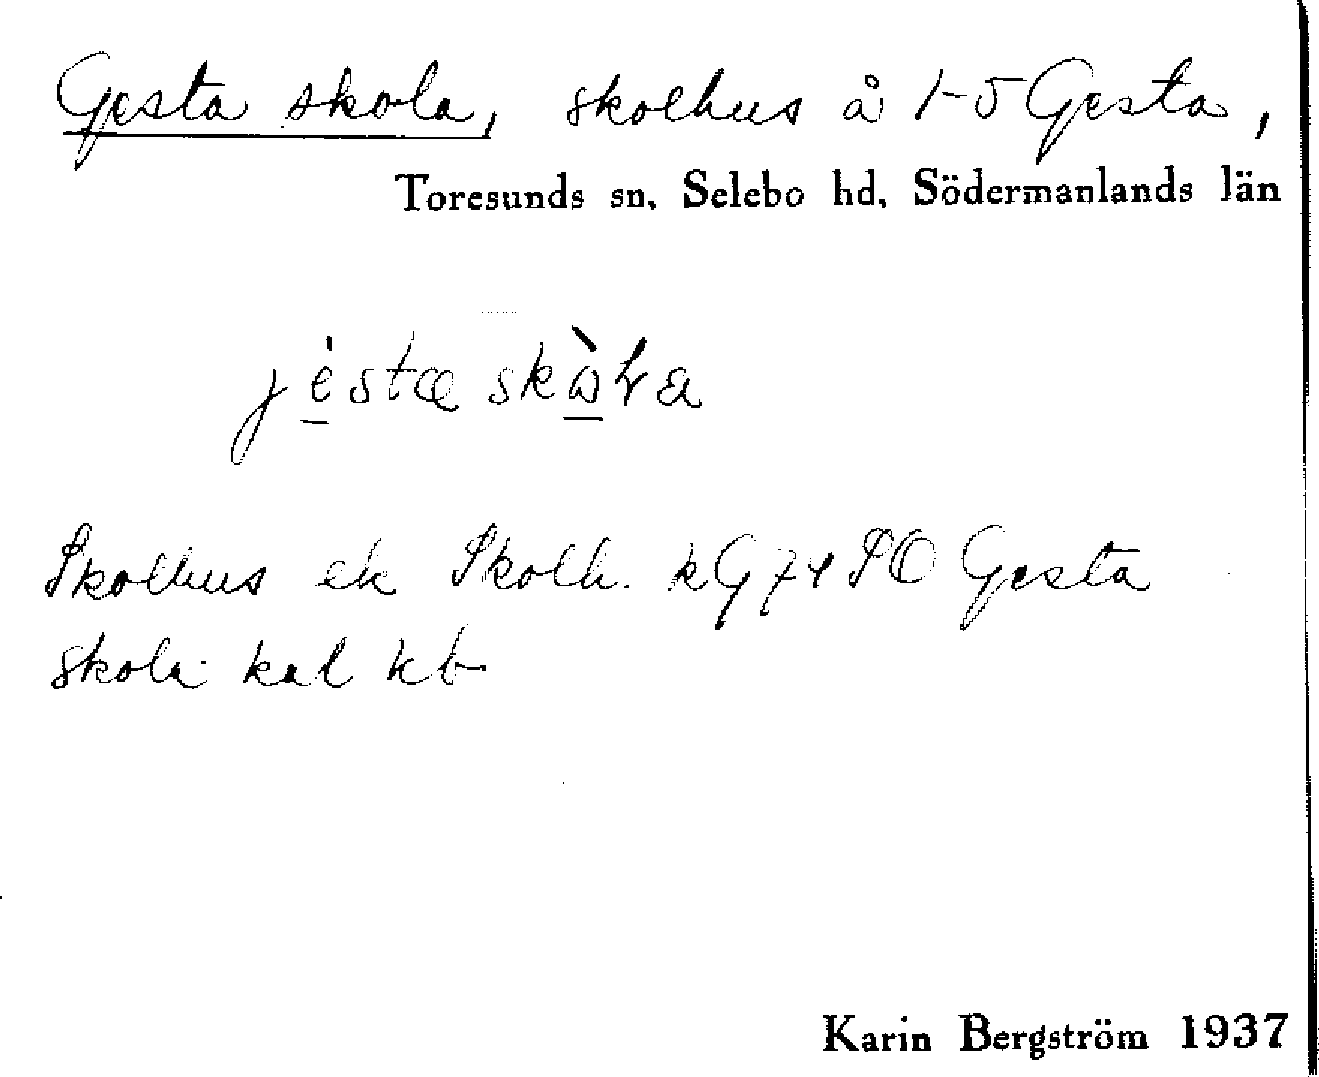 Gesta skola, skolhus å 1-5 Gesta,
Toresunds sn, Selebo hd, Södermanlands län
jèstæ skὼɫa
Skolhus ek Skolh. kG 74 SO Gesta
skola kal kb
Karin Bergström 1937